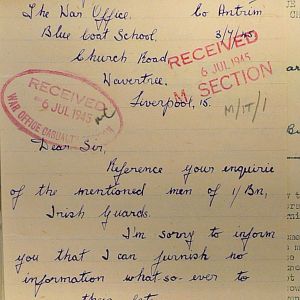 The War Office. Co Antrim
Blue Coat School. 3/7/45.
Church Road
Wavertree.
Liverpool, 15.
RECEIVED
6 JUL 1945
M SECTION
RECEIVED
6 JUL 1945
WAR OFFICE CASUALTY
M/IT/1
Dear Sir,
Reference your enquirie
of the mentioned men of 1/Bn,
Irish Guards.
I'm sorry to inform
you that I can furnish no
information what-so-ever to